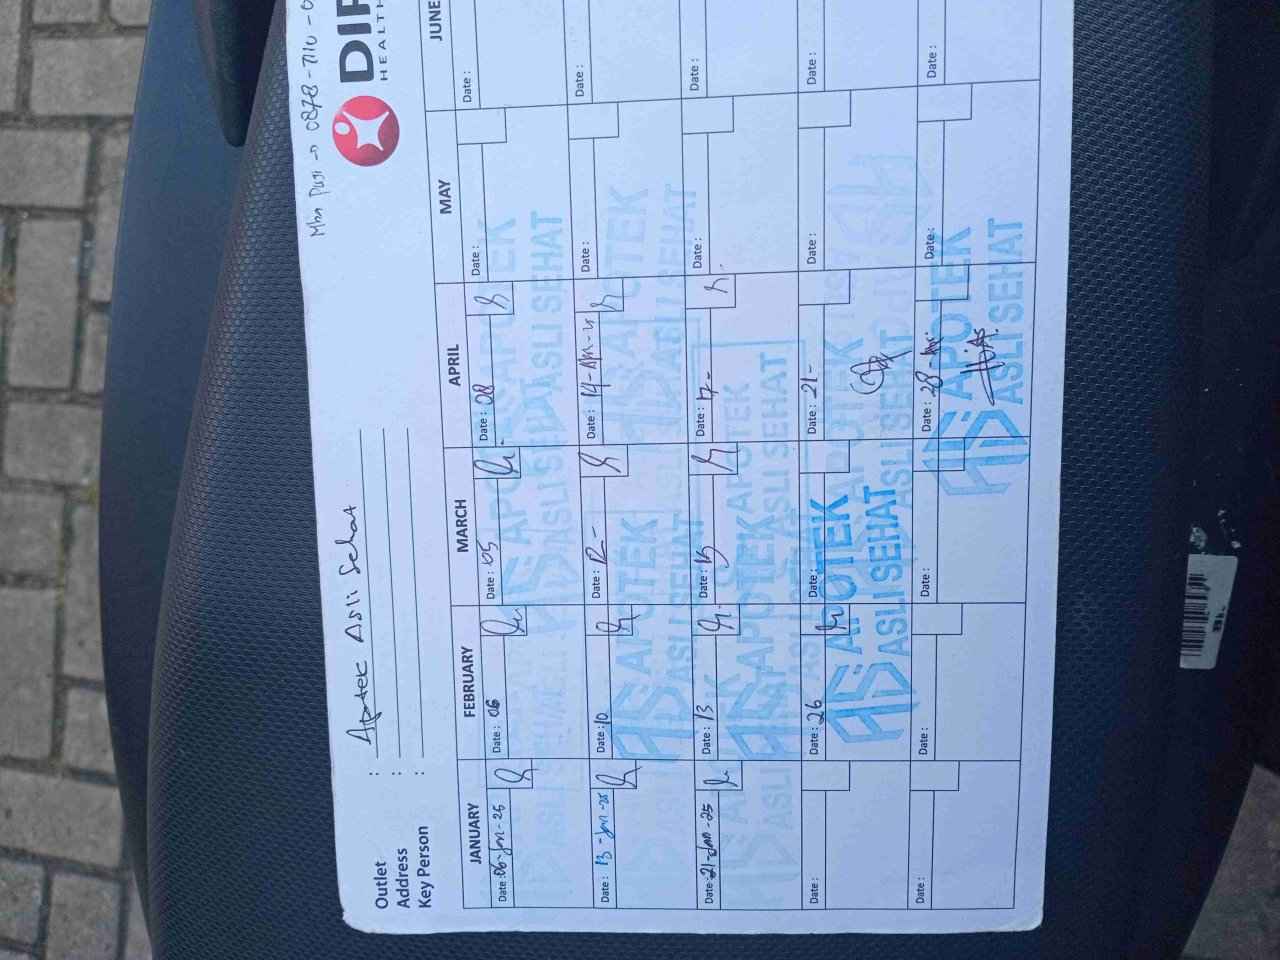 Mba Puji → 0878-7110-0
DIP
HEALTH
Outlet : Apotek Asli Sehat
Address :
Key Person :
JANUARY FEBRUARY MARCH APRIL MAY JUNE
Date : 06-Jan-25 Date : 06 Date : 05 Date : 08 Date : Date :
Date : 13-Jan-25 Date : 10 Date : 12- Date : 14-Apr-25 Date : Date :
Date : 21-Jan-25 Date : 13 Date : Date : 17- Date : Date :
Date : Date : 26 Date : Date : 21- Date : Date :
Date : Date : Date : Date : 28-Apr. Date : Date :
APOTEK
ASLI SEHAT
APOTEK
ASLI SEHAT
APOTEK
ASLI SEHAT
APOTEK
ASLI SEHAT